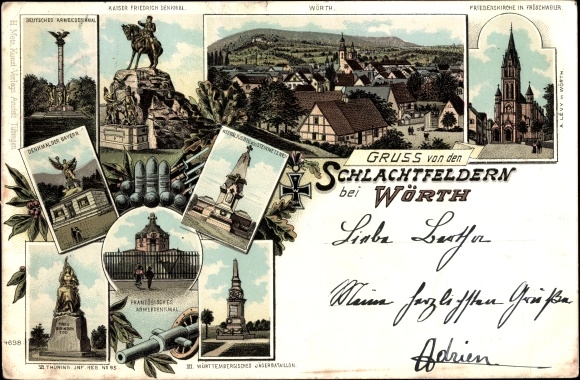 DEUTSCHES ARMEEDENKMAL
KAISER FRIEDRICH DENKMAL.
WÖRTH.
FRIEDENSKIRCHE IN FRÖSCHWEILER.
A. LÉVY in WÖRTH.
DENKMAL DER BAYERN.
GRUSS von den
SCHLACHTFELDERN
bei WÖRTH
Liebe Bertha
Meine herzlichsten Grüße
Adrien
FRANZÖSISCHES
ARMEEDENKMAL.
4698
VI. THÜRING. JNF. REG. No 95.
III. WÜRTTEMBERGISCHES JÄGERBATAILLON.